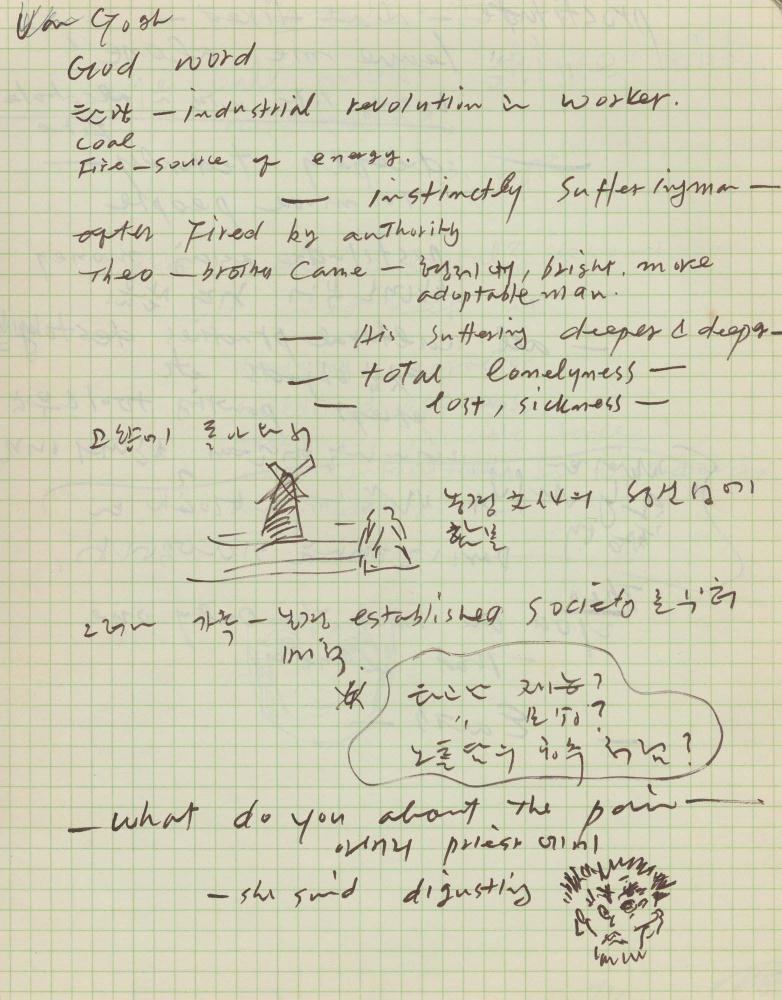 Van Gogh
God word
탄광 — industrial revolution in worker.
coal
Fire — source of energy.
— instinctly suffering man —
after Fired by authority
Theo — brother Came — bright, more
adoptable man.
— His suffering deeper & deeper —
— total lonelyness —
— lost, sickness —
고향에 돌아와서
농경
그러나 가족 — 농경 established society로부터
뛰어난 재능?
" 모방?
노틀담의 꼽추 처럼?
— what do you about the pain —
priest에게
— she said digusting